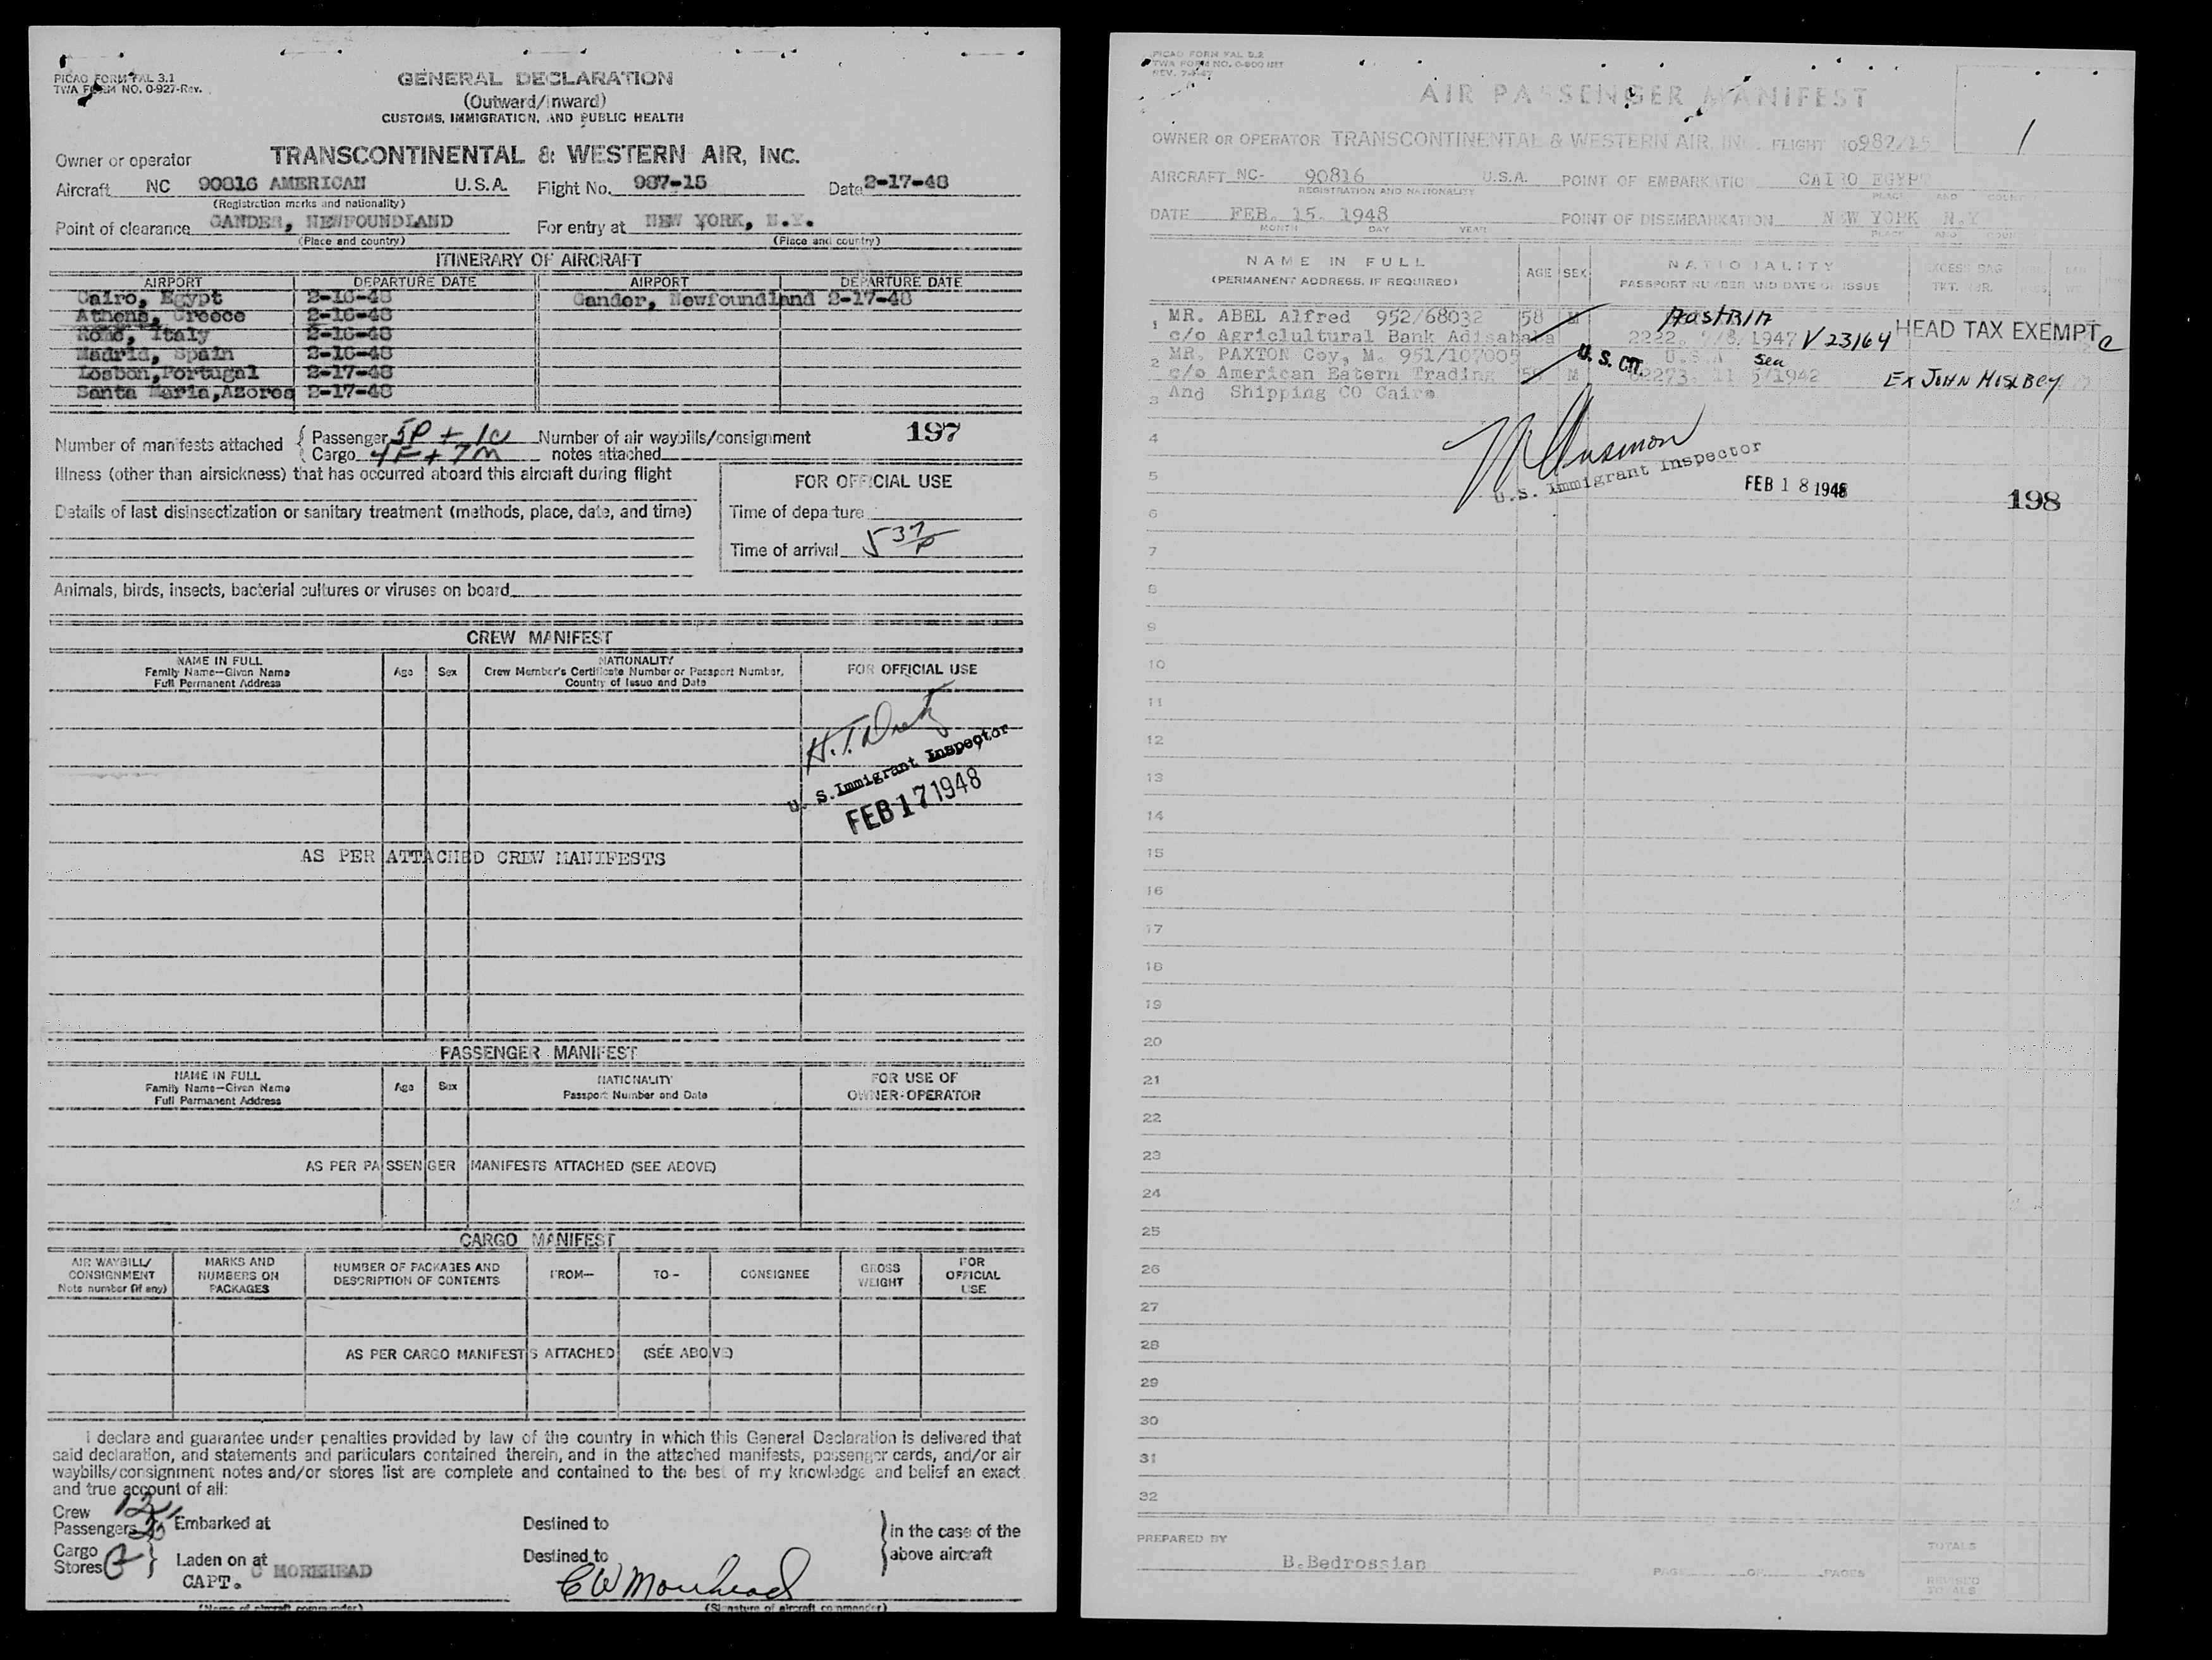 PICAO FORM FAL 3.1
TWA FORM NO. 0-927-Rev.
GENERAL DECLARATION
(Outward/Inward)
CUSTOMS, IMMIGRATION, AND PUBLIC HEALTH
Owner or operator TRANSCONTINENTAL & WESTERN AIR, INC.
Aircraft NC 90816 AMERICAN U.S.A. Flight No. 987-15 Date 2-17-48
(Registration marks and nationality)
Point of clearance GANDER, NEWFOUNDLAND For entry at NEW YORK, N.Y.
(Place and country) (Place and country)
ITINERARY OF AIRCRAFT
AIRPORT DEPARTURE DATE AIRPORT DEPARTURE DATE
Cairo, Egypt 2-16-48 Gander, Newfoundland 2-17-48
Athens, Greece 2-16-48
Rome, Italy 2-16-48
Madrid, Spain 2-16-48
Losbon,Portugal 2-17-48
Santa Maria,Azores 2-17-48
Number of manifests attached { Passenger 5P + 1C Number of air waybills/consignment 197
Cargo 4F + 7M notes attached
Illness (other than airsickness) that has occurred aboard this aircraft during flight
FOR OFFICIAL USE
Details of last disinsectization or sanitary treatment (methods, place, date, and time)
Time of departure
Time of arrival 5 37 P
Animals, birds, insects, bacterial cultures or viruses on board
CREW MANIFEST
NAME IN FULL
Family Name—Given Name
Full Permanent Address
Age Sex
NATIONALITY
Crew Member's Certificate Number or Passport Number,
Country of Issue and Date
FOR OFFICIAL USE
U. S. Immigrant Inspector
FEB 17 1948
AS PER ATTACHED CREW MANIFESTS
PASSENGER MANIFEST
NAME IN FULL
Family Name—Given Name
Full Permanent Address
Age Sex
NATIONALITY
Passport Number and Date
FOR USE OF
OWNER-OPERATOR
AS PER PASSENGER MANIFESTS ATTACHED (SEE ABOVE)
CARGO MANIFEST
AIR WAYBILL/
CONSIGNMENT
Note number (if any)
MARKS AND
NUMBERS ON
PACKAGES
NUMBER OF PACKAGES AND
DESCRIPTION OF CONTENTS
FROM—
TO—
CONSIGNEE
GROSS
WEIGHT
FOR
OFFICIAL
USE
AS PER CARGO MANIFESTS ATTACHED (SEE ABOVE)
I declare and guarantee under penalties provided by law of the country in which this General Declaration is delivered that
said declaration, and statements and particulars contained therein, and in the attached manifests, passenger cards, and/or air
waybills/consignment notes and/or stores list are complete and contained to the best of my knowledge and belief an exact
and true account of all:
Crew 12
Passengers Embarked at Destined to in the case of the
Cargo above aircraft
Stores Laden on at Destined to
CAPT. C MOREHEAD CW Morehead
(Name of aircraft commander) (Signature of aircraft commander)
PICAO FORM FAL 3.2
TWA FORM NO. 0-900 INT
AIR PASSENGER MANIFEST
1
OWNER OR OPERATOR TRANSCONTINENTAL & WESTERN AIR, INC. FLIGHT NO 987/15
AIRCRAFT NC- 90816 U.S.A. POINT OF EMBARKATION CAIRO EGYPT
REGISTRATION AND NATIONALITY PLACE AND COUNTRY
DATE FEB. 15. 1948 POINT OF DISEMBARKATION NEW YORK N.Y
MONTH DAY YEAR PLACE AND COUNTRY
NAME IN FULL
(PERMANENT ADDRESS, IF REQUIRED)
AGE SEX
NATIONALITY
PASSPORT NUMBER AND DATE OF ISSUE
EXCESS BAG
TKT. NBR.
1 MR. ABEL Alfred 952/68032 58 M Austria
c/o Agriclultural Bank Adisababa 2222. 1947 V 23164 HEAD TAX EXEMPT
2 MR. PAXTON Coy, M. 951/107005 U.S. CIT. U.S.A Sea
c/o American Eatern Trading M 1942 Ex JOHN MOSBEY
3 And Shipping CO Cairo
4
5
U.S. Immigrant Inspector
FEB 18 1948
198
6
7
8
9
10
11
12
13
14
15
16
17
18
19
20
21
22
23
24
25
26
27
28
29
30
31
32
PREPARED BY
B.Bedrossian
PAGE OF PAGES
TOTALS
REVISED
TOTALS